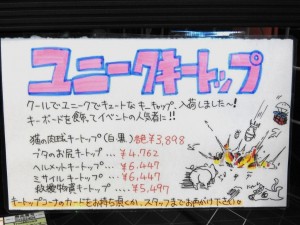 ユニークキートップ
クールでユニークでキュートなキーキャップ、入荷しました〜!
キーボードを飾ってイベントの人気者に!!
猫の肉球キートップ(白黒) 各¥3,898
ブタのお尻キートップ... ¥4,762
ヘルメットキートップ... ¥6,447
ミサイルキートップ... ¥6,447
救援物資キートップ... ¥5,497
キートップコーナーのカードをお持ち頂くか、スタッフまでお声がけ下さい